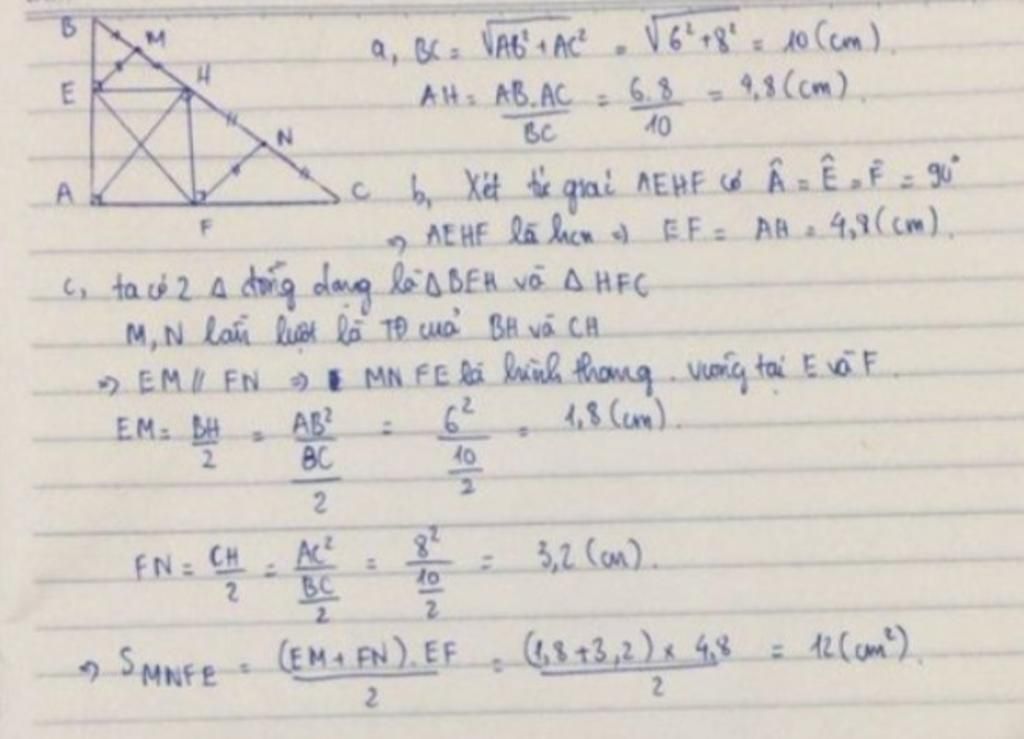 B
M
E
H
N
A
F
C
a, BC = √AB² + AC² = √6² + 8² = 10 (cm).
AH = AB.AC / BC = 6.8 / 10 = 4,8 (cm).
b, Xét tứ giác AEHF có Â = Ê = F̂ = 90°
⇒ AEHF là hcn ⇒ EF = AH = 4,8 (cm).
c, ta có 2 Δ đồng dạng là ΔBEH và Δ HFC
M, N lần lượt là TĐ của BH và CH
⇒ EM // FN ⇒ MNFE là hình thang. vuông tại E và F.
EM = BH / 2 = AB² / BC / 2 = 6² / 10 / 2 = 1,8 (cm).
FN = CH / 2 = AC² / BC / 2 = 8² / 10 / 2 = 3,2 (cm).
⇒ S MNFE = (EM + FN).EF / 2 = (1,8 + 3,2) x 4,8 / 2 = 12 (cm²).